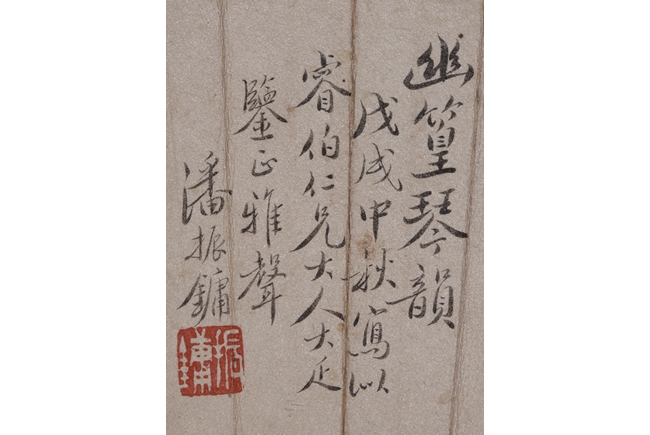 幽篁琴韻
戊戌中秋寫似
睿伯仁兄大人大疋
鑒正雅聲
潘振鏞
振鏞